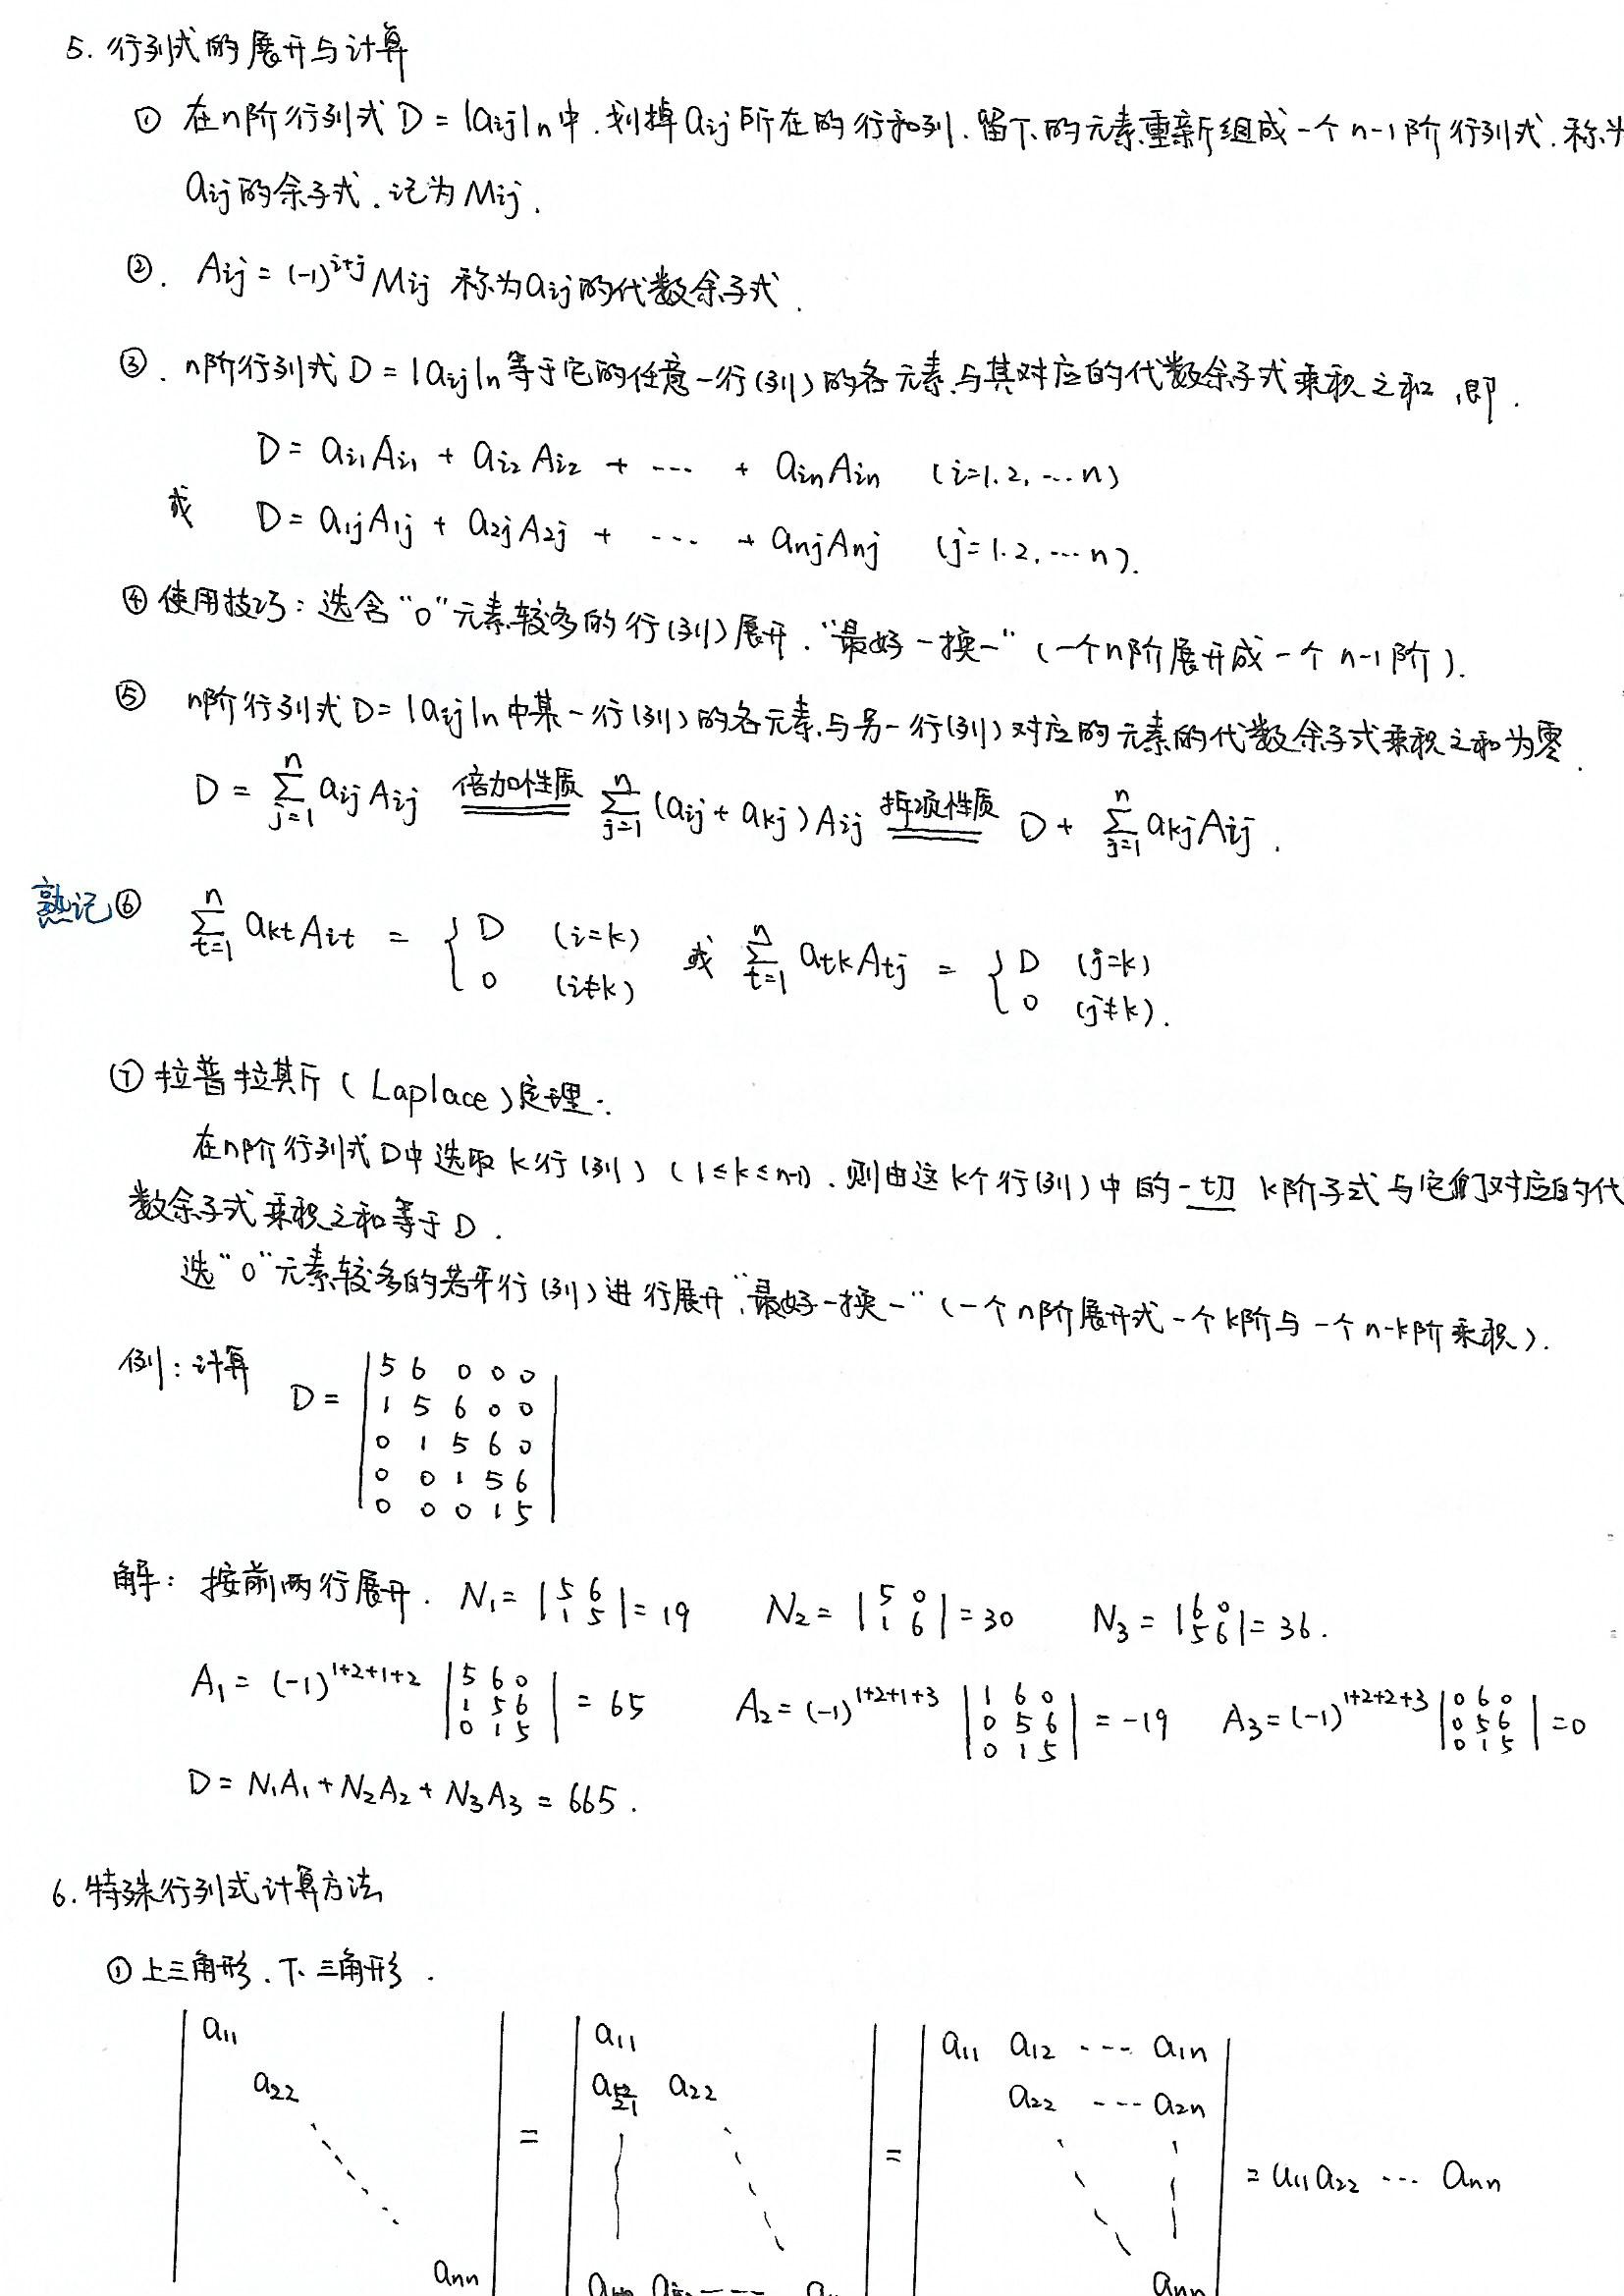 5. 行列式的展开与计算
① 在n阶行列式 D = |aij|n中.划掉aij所在的行和列.留下的元素重新组成一个n-1阶行列式.称为
aij的余子式.记为Mij.
②. Aij = (-1)^{i+j} Mij 称为aij的代数余子式.
③. n阶行列式 D = |aij|n等于它的任意一行(列)的各元素与其对应的代数余子式乘积之和,即.
D = ai1Ai1 + ai2Ai2 + ... + ainAin (i=1.2,...n)
或 D = a1jA1j + a2jA2j + ... + anjAnj (j=1.2,...n).
④ 使用技巧: 选含“0”元素较多的行(列)展开.“最好一换一” (一个n阶展开成一个 n-1阶).
⑤ n阶行列式D=|aij|n中某一行(列)的各元素与另一行(列)对应的元素的代数余子式乘积之和为零.
D = \sum_{j=1}^{n} aij Aij 倍加性质 \sum_{j=1}^{n} (aij + akj) Aij 拆项性质 D + \sum_{j=1}^{n} akjAij.
熟记 ⑥ \sum_{t=1}^{n} aktAit = { D (i=k) 0 (i≠k) 或 \sum_{t=1}^{n} atkAtj = { D (j=k) 0 (j≠k).
⑦ 拉普拉其斤 (Laplace) 定理.
在n阶行列式D中选取k行(列) (1≤k≤n-1).则由这k个行(列)中的一切 k阶子式与它们对应的代
数余子式乘积之和等于D.
选“0”元素较多的若干行(列)进行展开“最好一换一” (一个n阶展开式一个k阶与一个n-k阶乘积).
例: 计算 D =
5 6 0 0 0
1 5 6 0 0
0 1 5 6 0
0 0 1 5 6
0 0 0 1 5
解: 按前两行展开. N1 = |5 6; 1 5| = 19 N2 = |5 0; 1 6| = 30 N3 = |6 0; 5 6| = 36.
A1 = (-1)^{1+2+1+2} |5 6 0; 1 5 6; 0 1 5| = 65 A2 = (-1)^{1+2+1+3} |1 6 0; 0 5 6; 0 1 5| = -19 A3 = (-1)^{1+2+2+3} |0 6 0; 0 5 6; 0 1 5| = 0
D = N1A1 + N2A2 + N3A3 = 665.
6. 特殊行列式计算方法
① 上三角形.下三角形.
a11 a11 a11 a12 ... a1n
a22 = a21 a22 = a22 ... a2n = a11a22 ... ann
ann ann